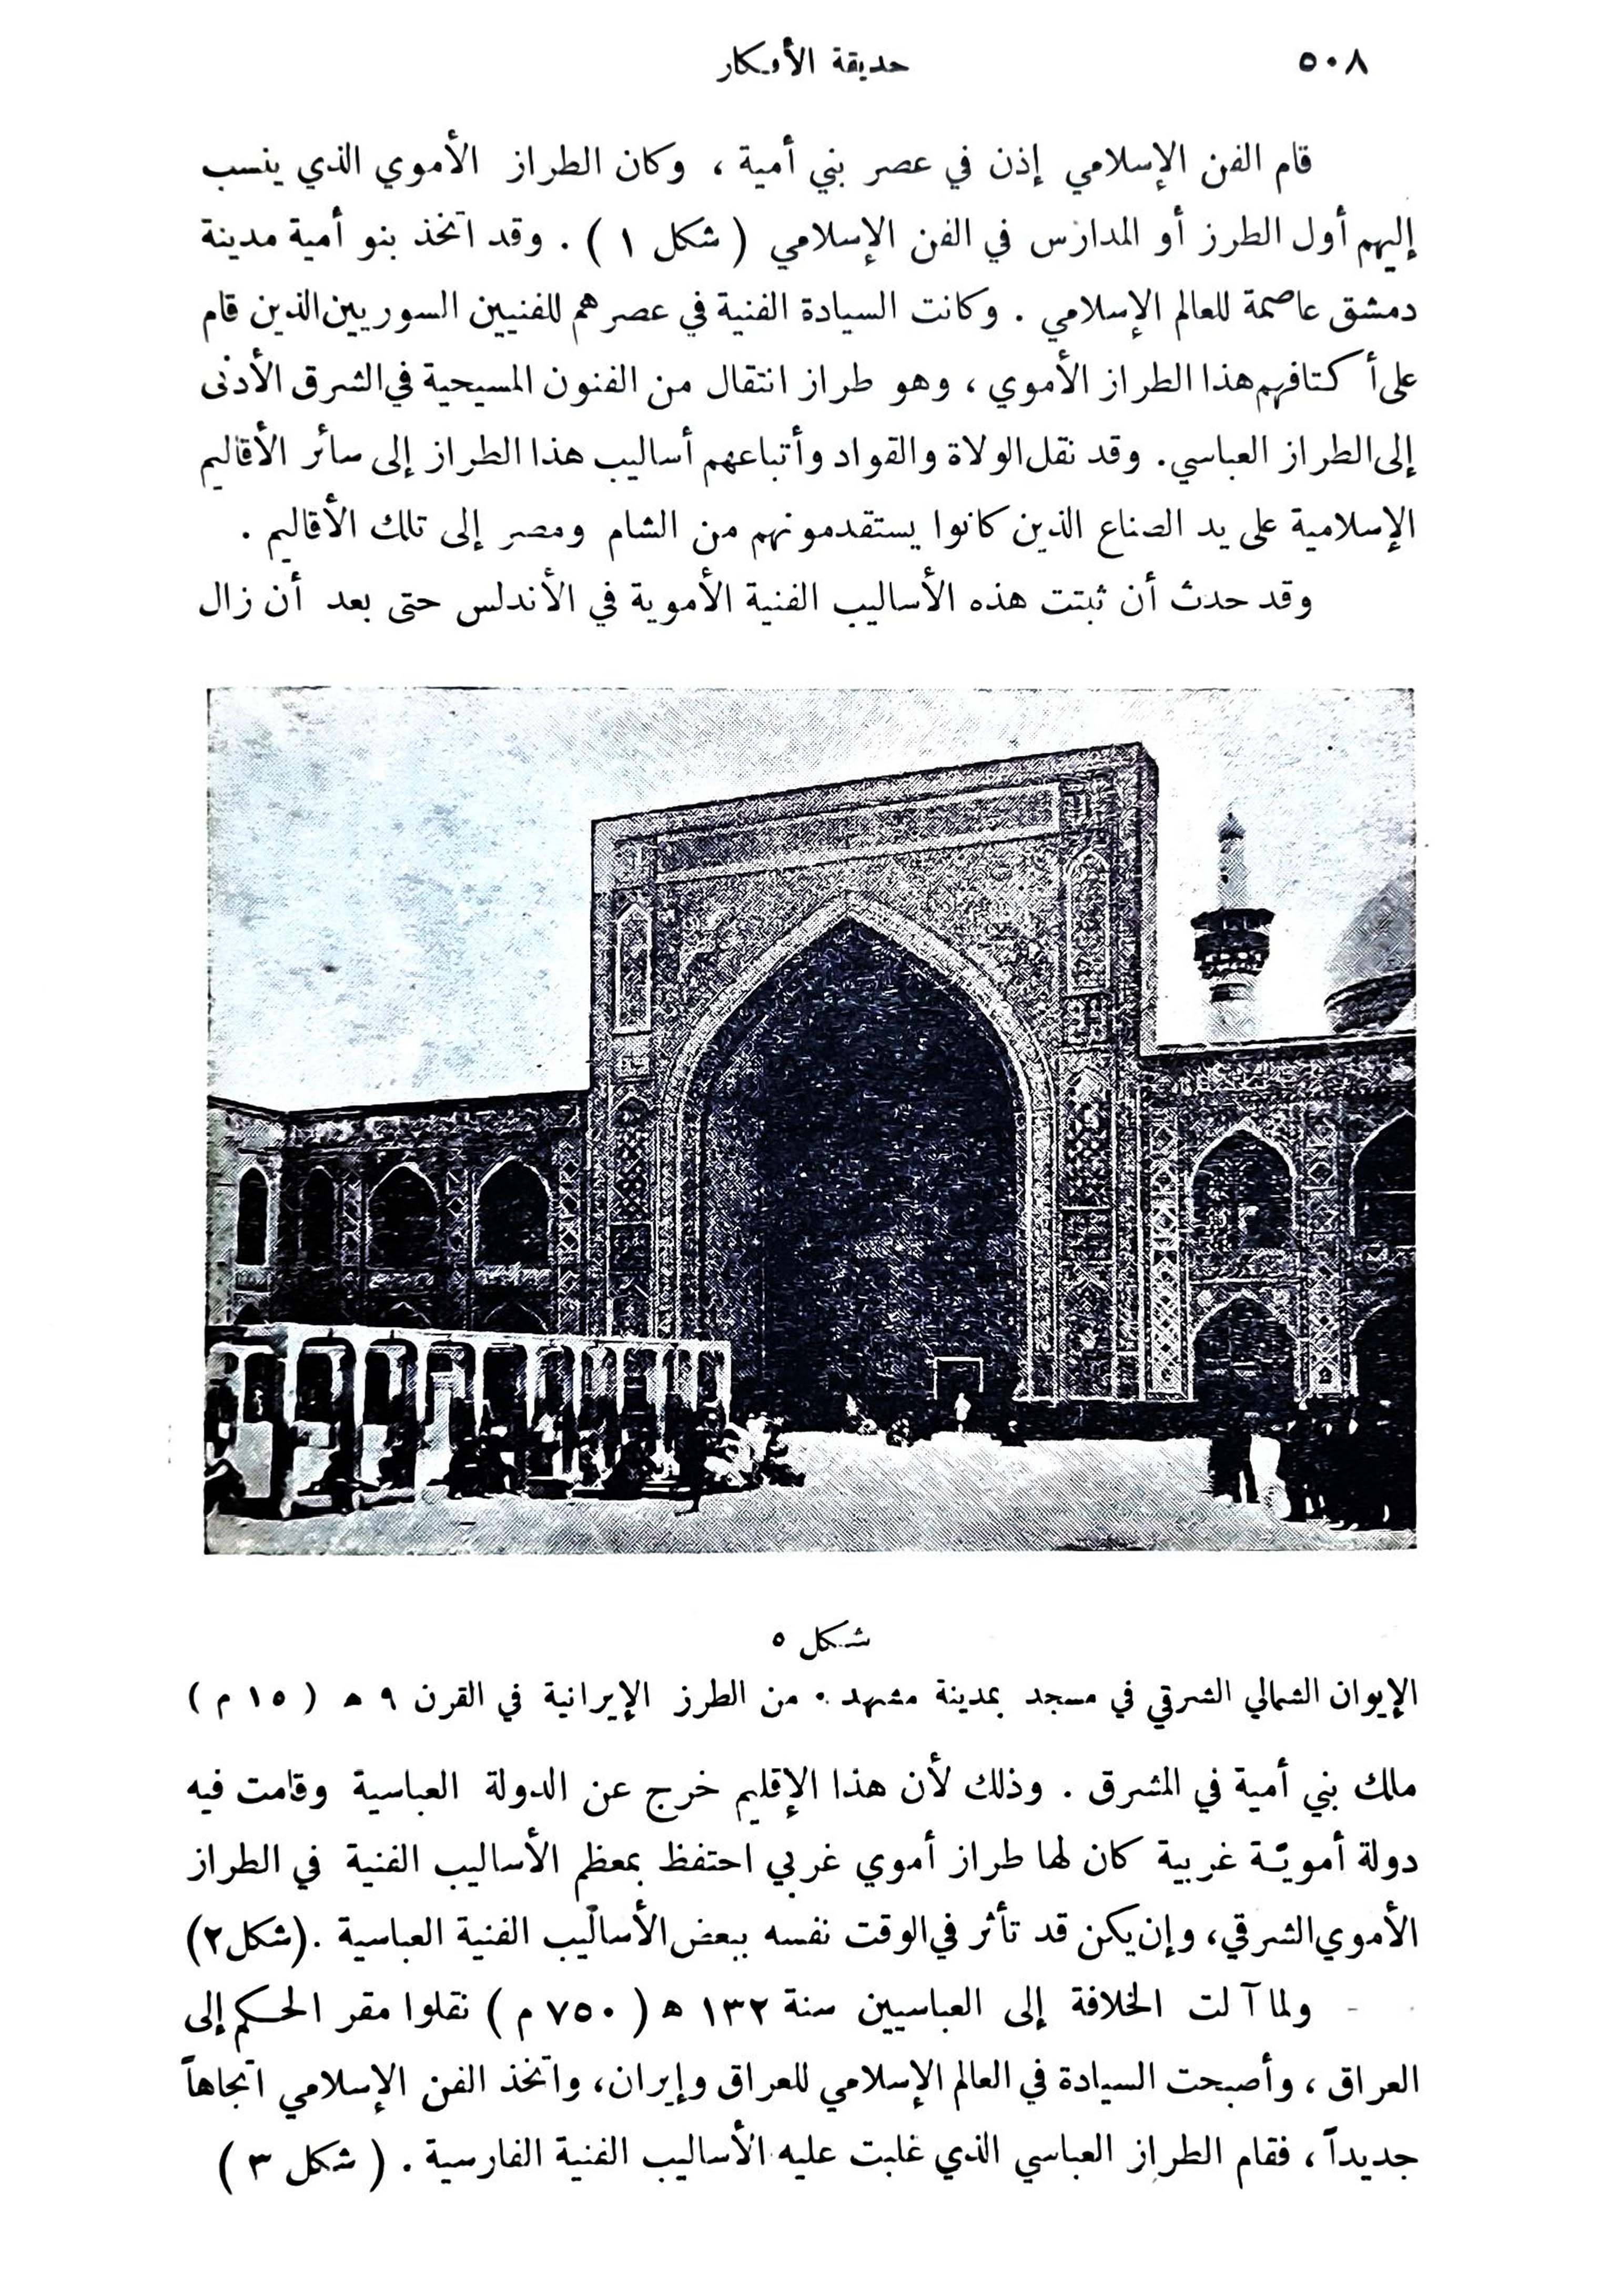 ٥٠٨
حديقة الأفكار
قام الفن الإسلامي إذن في عصر بني أمية ، وكان الطراز الأموي الذي ينسب
إليهم أول الطرز أو المدارس في الفن الإسلامي ( شكل ١ ) . وقد اتخذ بنو أمية مدينة
دمشق عاصمة للعالم الإسلامي . وكانت السيادة الفنية في عصرهم للفنيين السوريين الذين قام
على أكتافهم هذا الطراز الأموي ، وهو طراز انتقال من الفنون المسيحية في الشرق الأدنى
إلى الطراز العباسي . وقد نقل الولاة والقواد وأتباعهم أساليب هذا الطراز إلى سائر الأقاليم
الإسلامية على يد الصناع الذين كانوا يستقدمونهم من الشام ومصر إلى تلك الأقاليم .
وقد حدث أن ثبتت هذه الأساليب الفنية الأموية في الأندلس حتى بعد أن زال
شكل ٥
الإيوان الشمالي الشرقي في مسجد بمدينة مشهد . من الطرز الإيرانية في القرن ٩ ه ( ١٥ م )
ملك بني أمية في المشرق . وذلك لأن هذا الإقليم خرج عن الدولة العباسية وقامت فيه
دولة أمويّة غربية كان لها طراز أموي غربي احتفظ بمعظم الأساليب الفنية في الطراز
الأموي الشرقي ، وإن يكن قد تأثر في الوقت نفسه ببعض الأساليب الفنية العباسية . (شكل ٢)
ولما آلت الخلافة إلى العباسيين سنة ١٣٢ ه ( ٧٥٠ م ) نقلوا مقر الحكم إلى
العراق ، وأصبحت السيادة في العالم الإسلامي للعراق وإيران ، واتخذ الفن الإسلامي اتجاهاً
جديداً ، فقام الطراز العباسي الذي غلبت عليه الأساليب الفنية الفارسية . ( شكل ٣ )